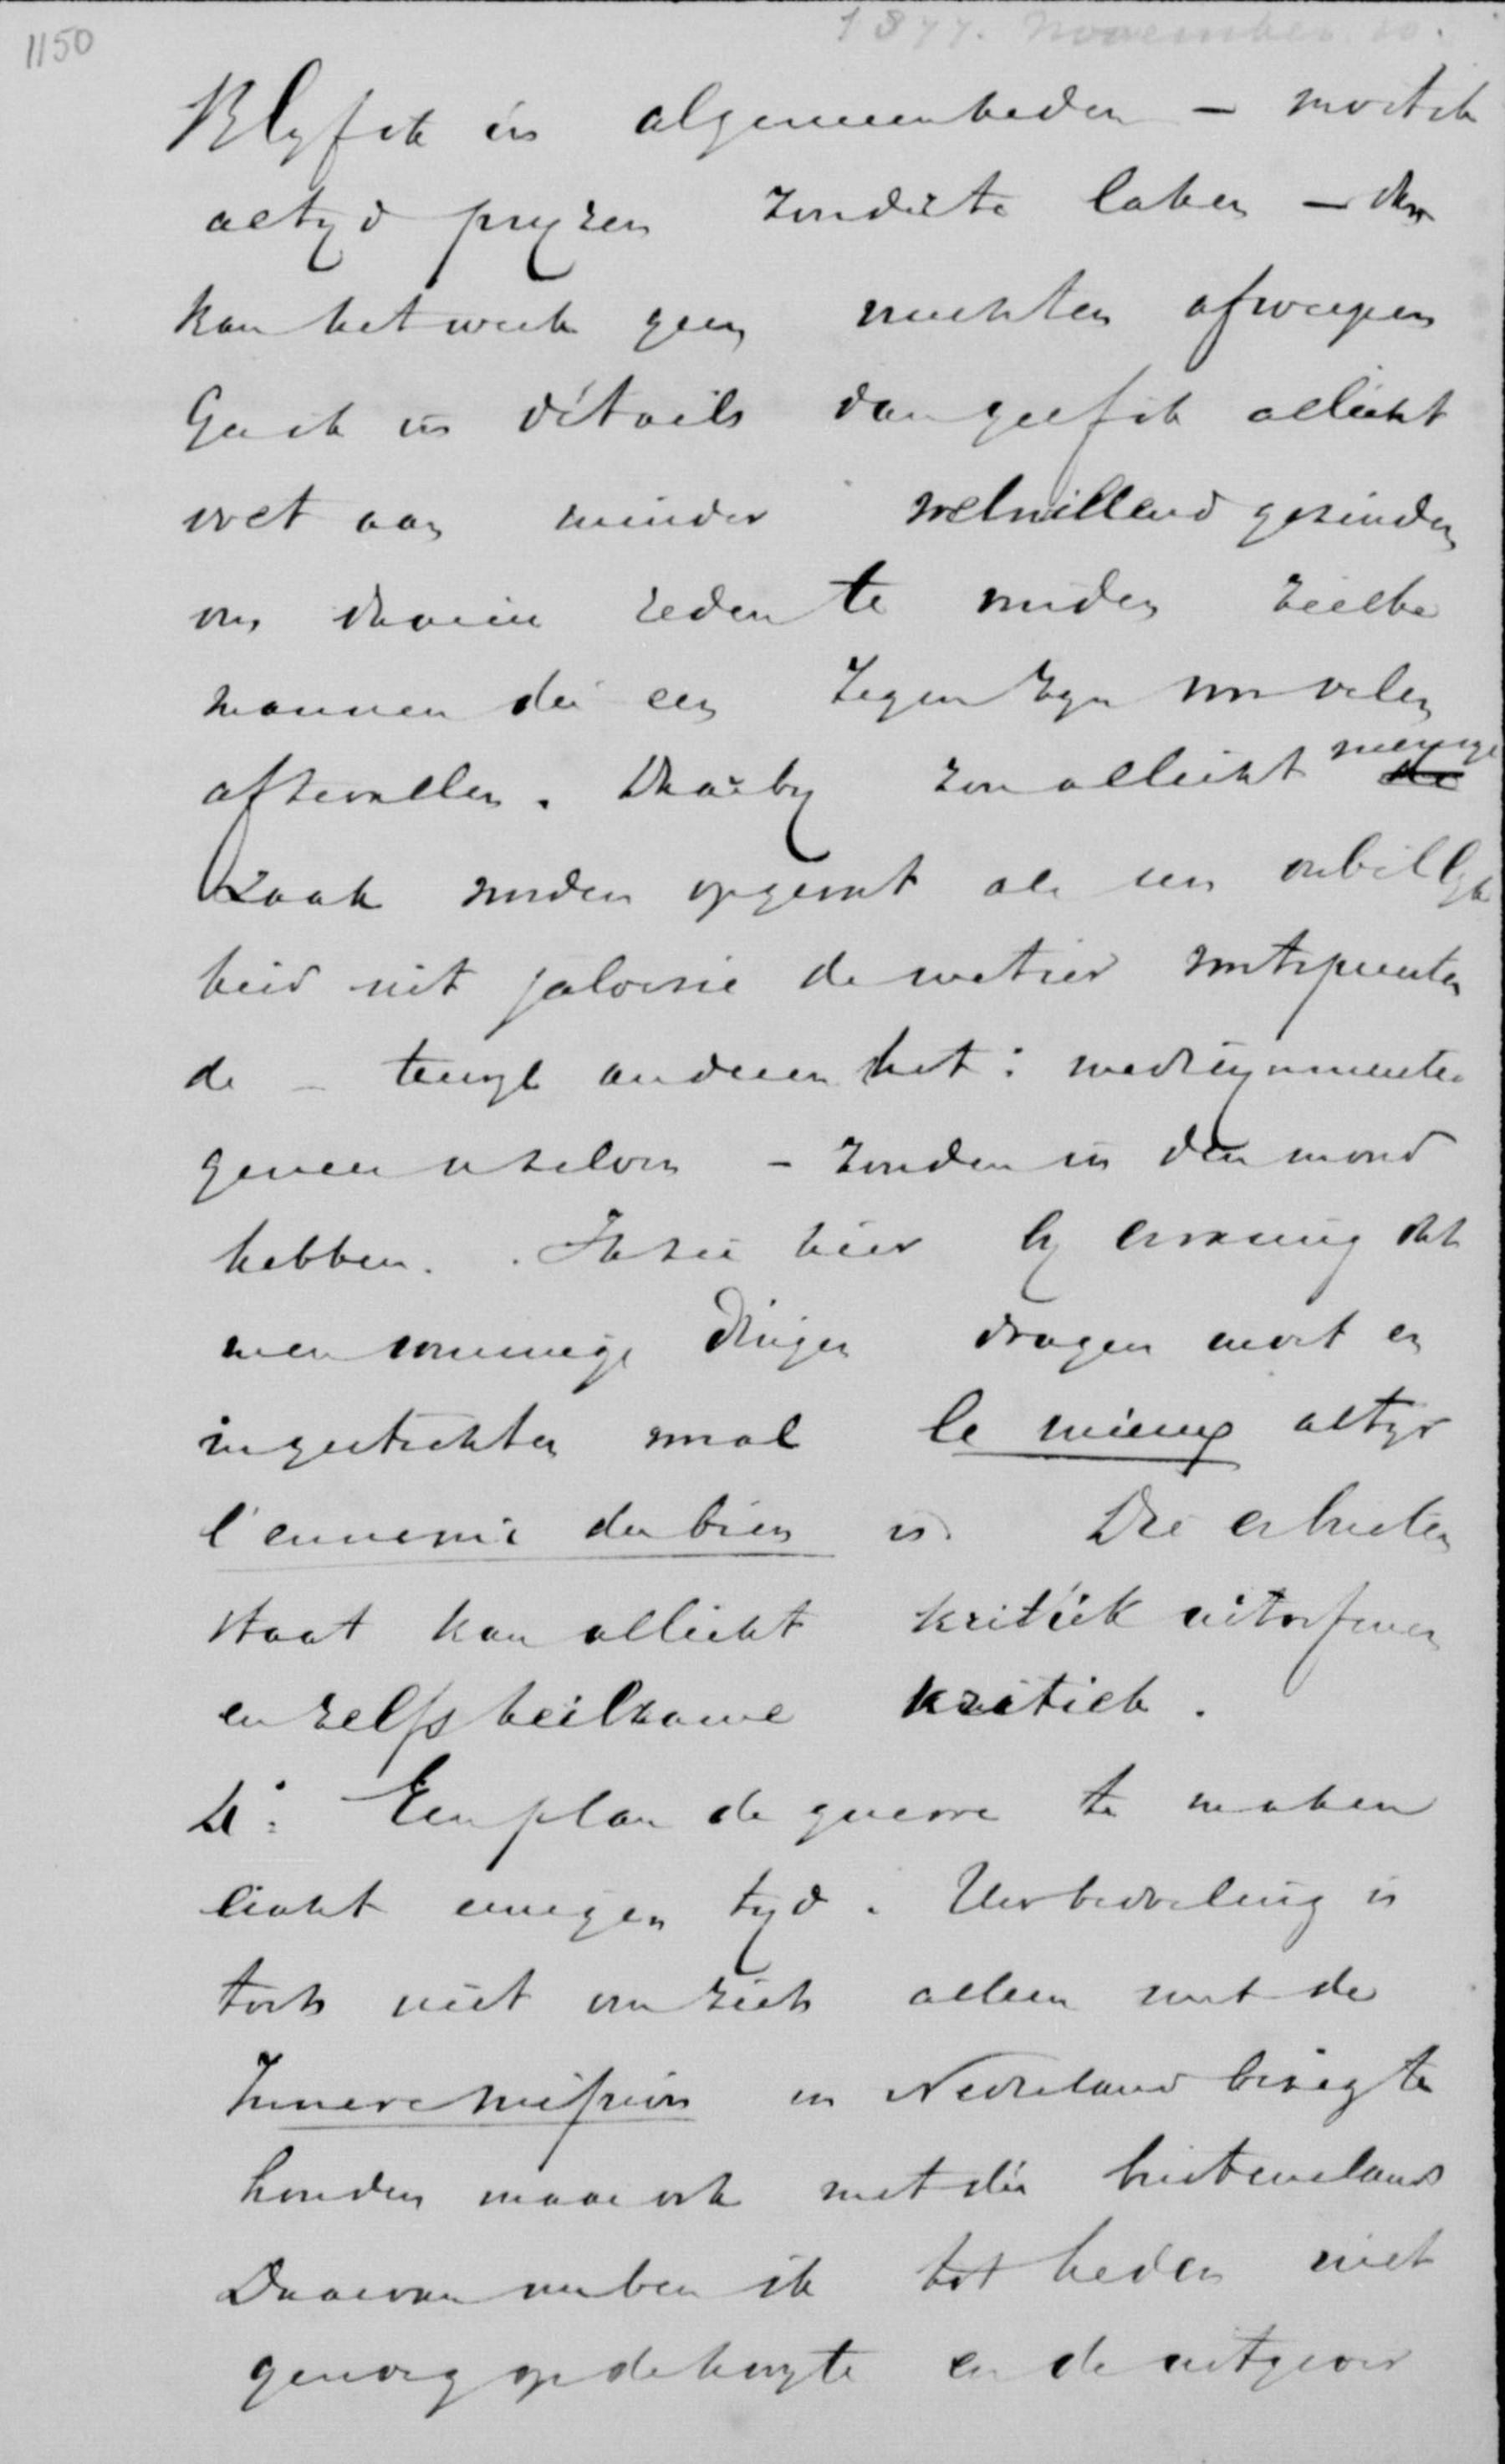 1150
1877. November 10.
Blyf ik in algemeenheden – moet ik
altyd pryzen zonder te laken – dan
kan het werk geen vruchten afwerpen
Ga ik in détails dan geef ik allicht
voet aan minder welwillend gezinden
om daarin reden te vinden zulke
mannen die een tegen zyn
aftevallen. Daarby zou allicht menige
zaak worden opgevat als een onbillyk
heid uit jalousie de metier ontspruiten
de – terwyl anderen het: medicynmeester
genees uzelven – zouden in den mond
hebben. Ik zie hier by ervaring dat
men sommige dingen dragen moet en
le mieux altyd
l'ennemi du bien is. Die er buiten
staat kan allicht kritiek uitoefenen
en zelfs heilzame kritiek.
4° Een plan de guerre te maken
eischt eenigen tyd. Uw bedoeling is
toch niet om zich alleen met de
Innere Mission in Nederland bezig te
houden maar ook met die buitenslands
Daarvan nu ben ik tot heden niet
genoeg op de hoogte en de uitgever